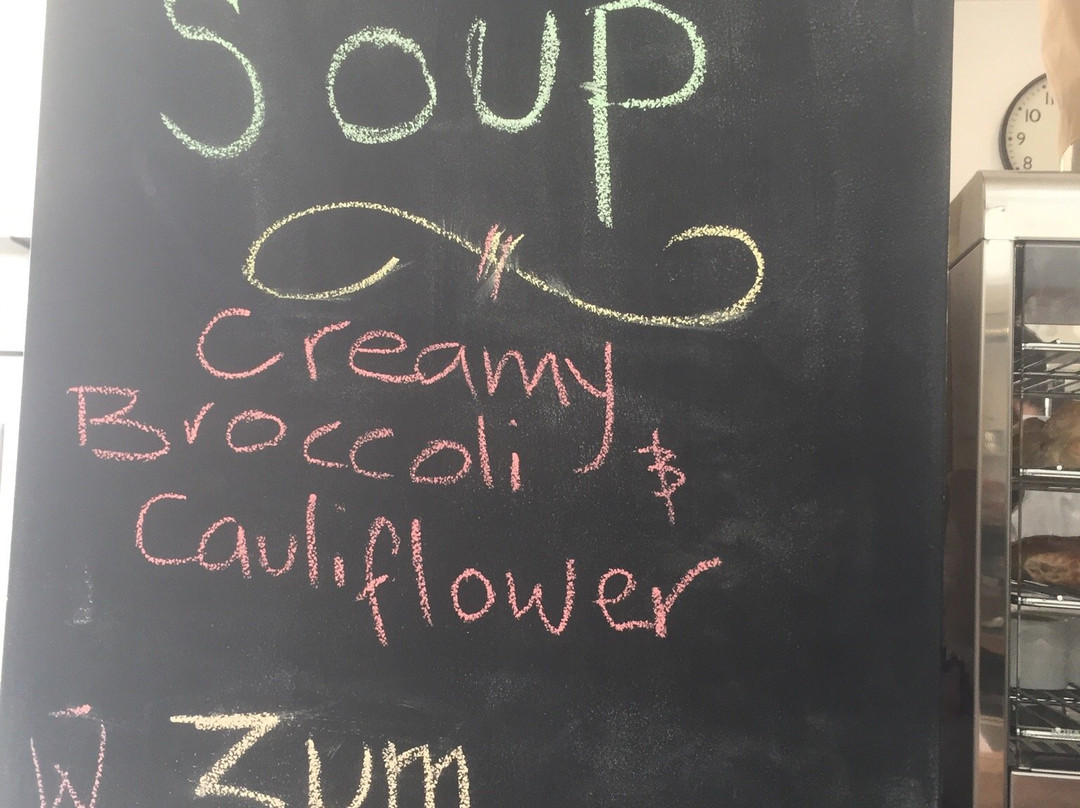 Soup
Creamy
Broccoli &
Cauliflower
W Zum
11
10
9
8